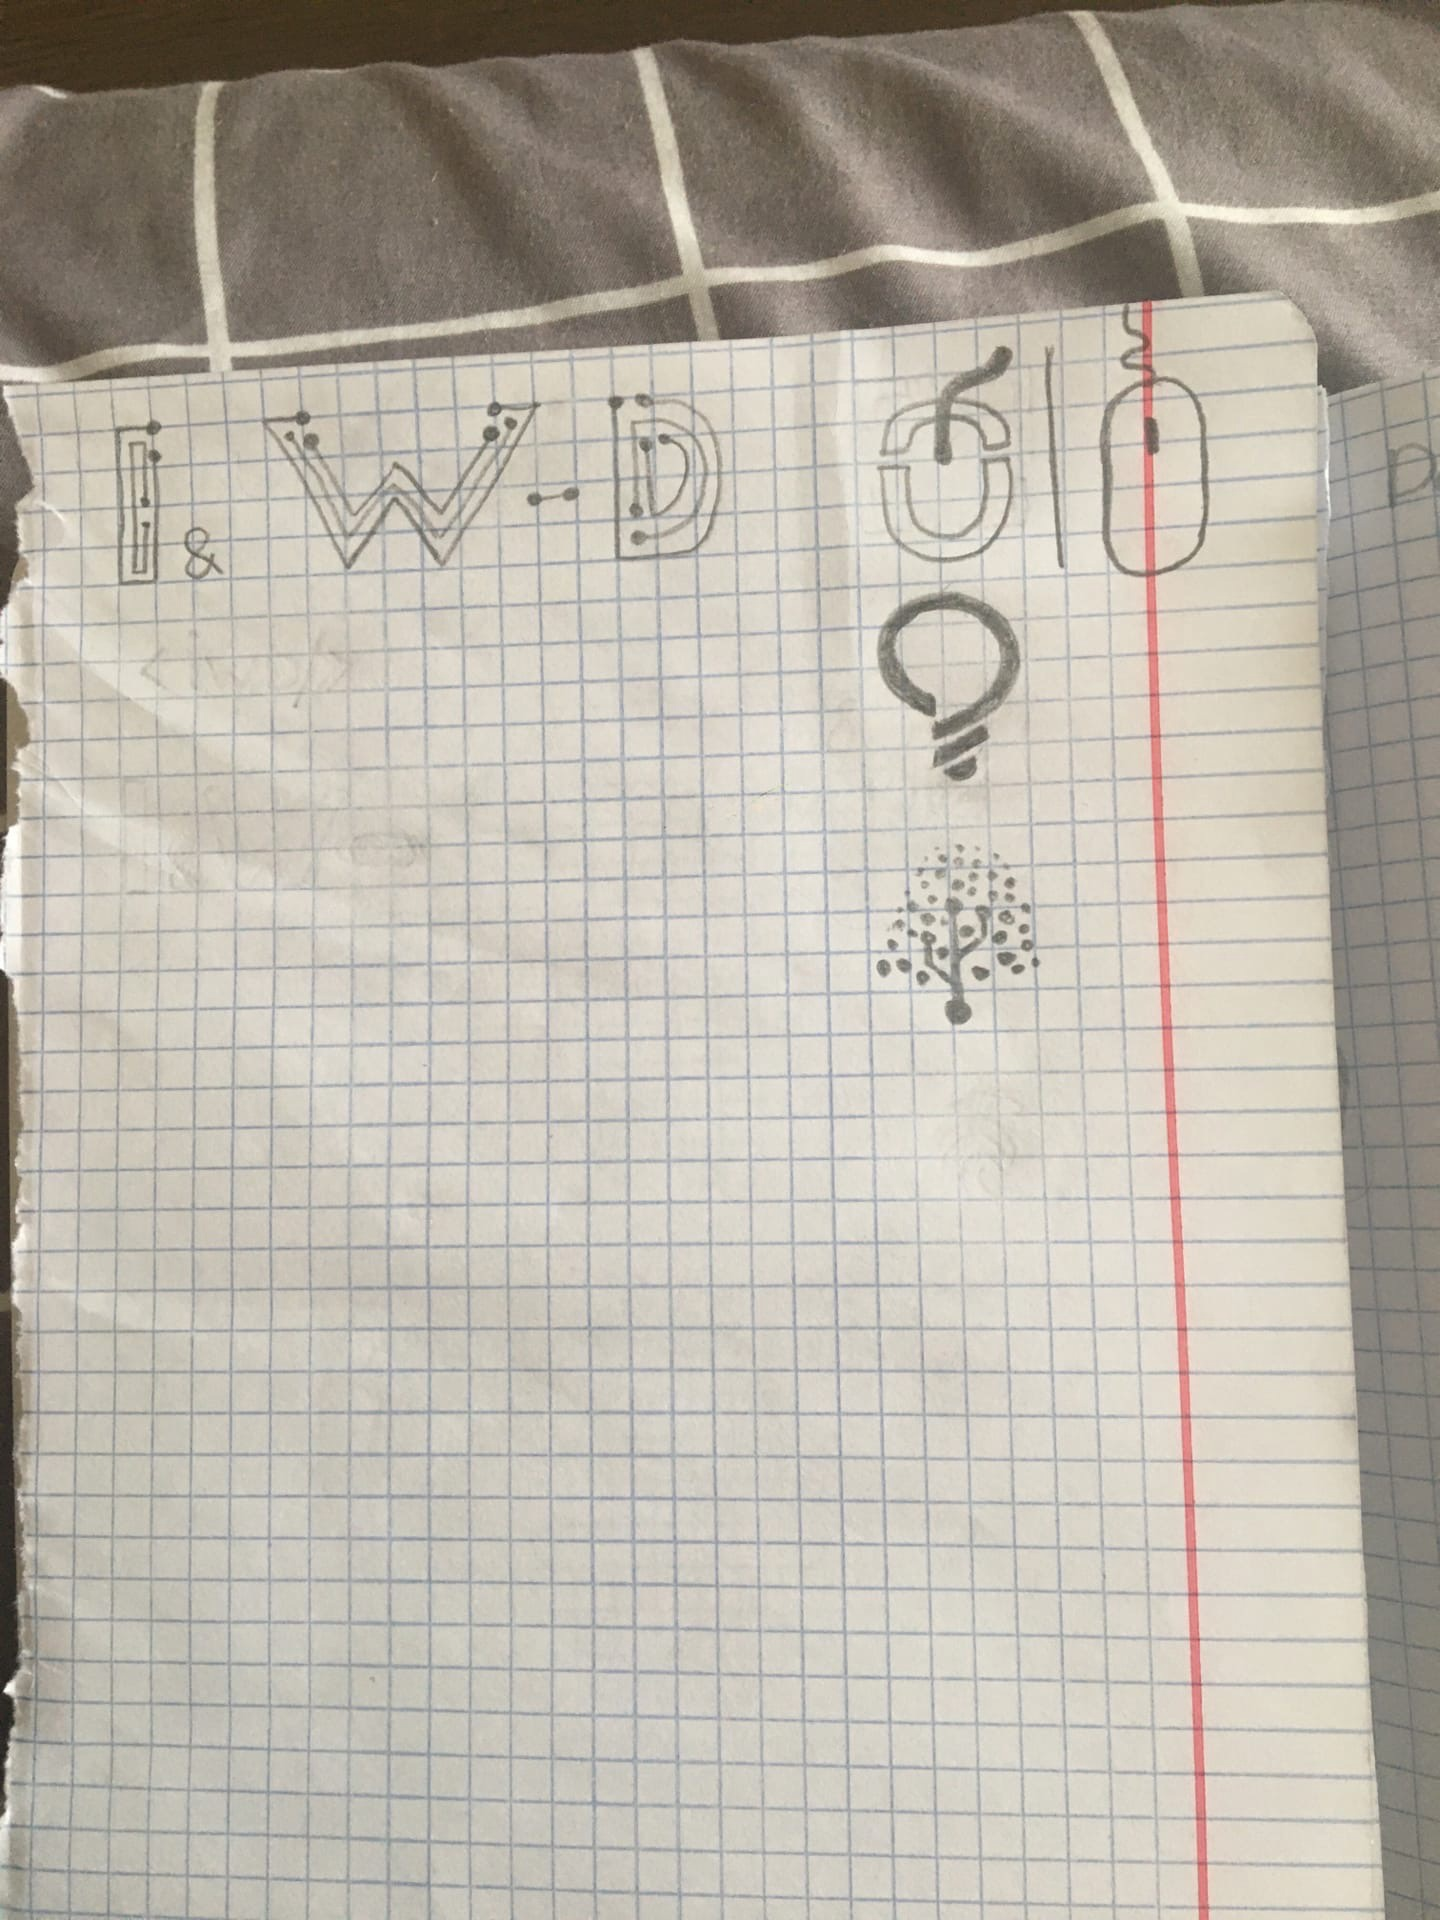 I & W-D